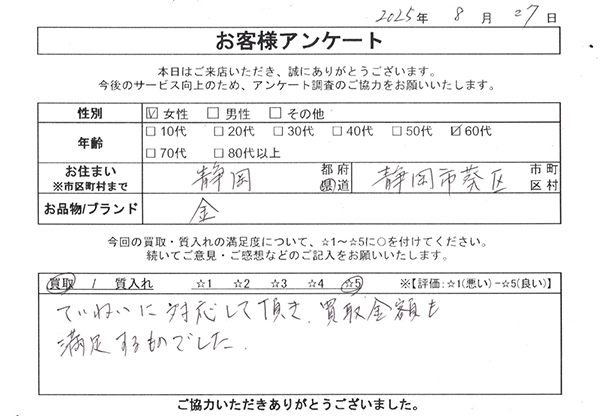 2025年 8月 27日
お客様アンケート
本日はご来店いただき、誠にありがとうございます。
今後のサービス向上のため、アンケート調査のご協力をお願いいたします。
性別 ☑女性 □男性 □その他
年齢 □10代 □20代 □30代 □40代 □50代 ☑60代
□70代 □80代以上
お住まい
※市区町村まで
静岡 都府県道 静岡市葵区 市町区村
お品物/ブランド 金
今回の買取・質入れの満足度について、☆1～☆5に○を付けてください。
続いてご意見・ご感想などのご記入をお願いいたします。
買取 / 質入れ ☆1 ☆2 ☆3 ☆4 ☆5 ※【評価:☆1(悪い)-☆5(良い)】
ていねいに対応して頂き、買取金額も
満足するものでした.
ご協力いただきありがとうございました。